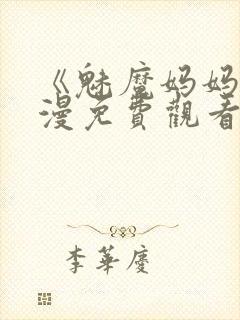 《魅魔妈妈
漫免費觀看
李華慶